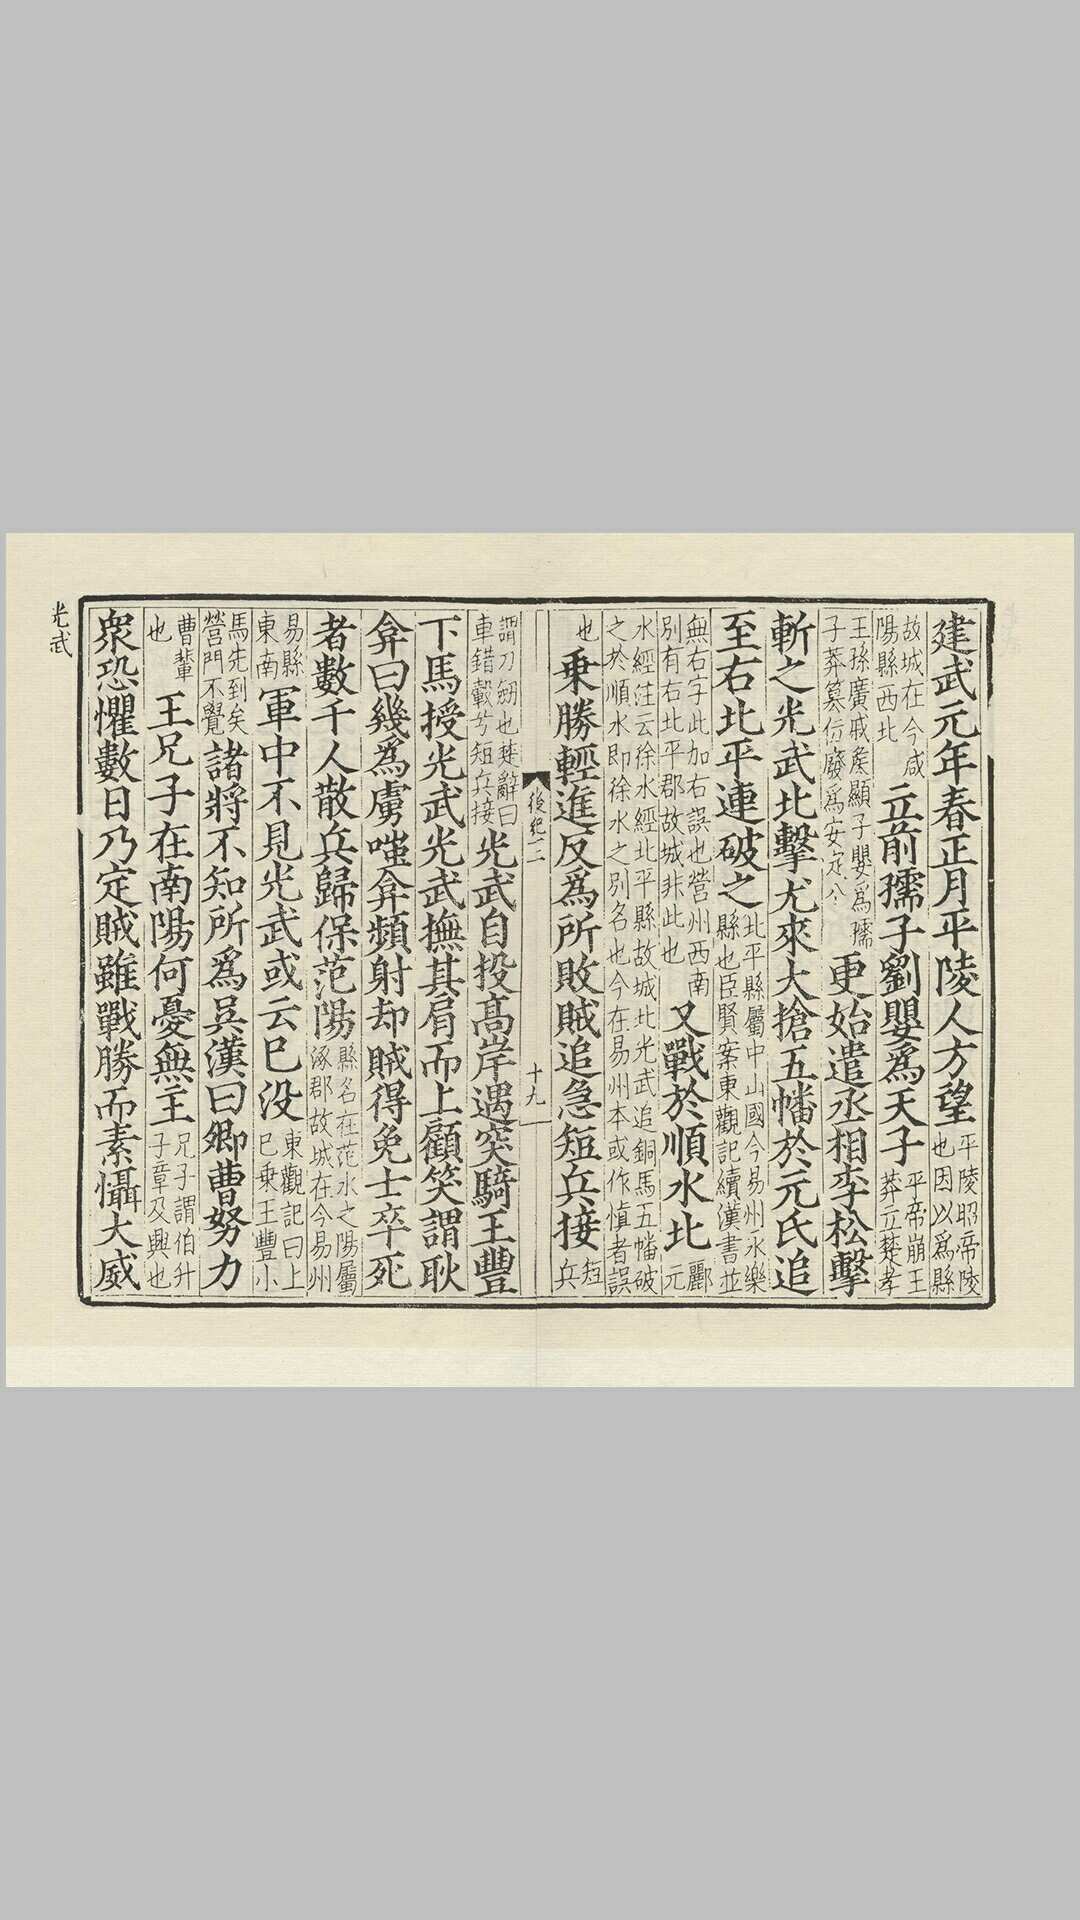 建武元年春正月平陵人方望平陵昭帝陵也因以爲縣
故城在今咸陽縣西北立前孺子劉嬰爲天子平帝崩王莽立楚孝
王孫廣戚矦顯子嬰爲孺子莽簒位廢爲安定更始遣丞相李松擊
斬之光武北擊尤來大搶五幡於元氏追
至右北平連破之北平縣屬中山國今易州永樂縣也臣賢案東觀記續漢書並
無右字此加右誤也營州西南別有右北平郡故城非此也又戰於順水北酈元
水經注云徐水經北平縣故城北光武追銅馬五幡破之於順水即徐水之別名也今在易州本或作愼者誤
也乗勝輕進反爲所敗賊追急短兵接短兵
後紀一
十九
謂刀劒也楚辭曰車錯轂兮短兵接光武自投髙岸遇突騎王豐
下馬授光武光武撫其肩而上顧笑謂耿
弇曰幾爲虜嗤弇頻射却賊得免士卒死
者數千人散兵歸保范陽縣名在范水之陽屬涿郡故城在今易州
易縣東南軍中不見光武或云已没東觀記曰上已乗王豐小
馬先到矣營門不覺諸將不知所爲吳漢曰卿曹努力
曹輩也王兄子在南陽何憂無主兄子謂伯升子章及興也
衆恐懼數日乃定賊雖戰勝而素懾大威
光武